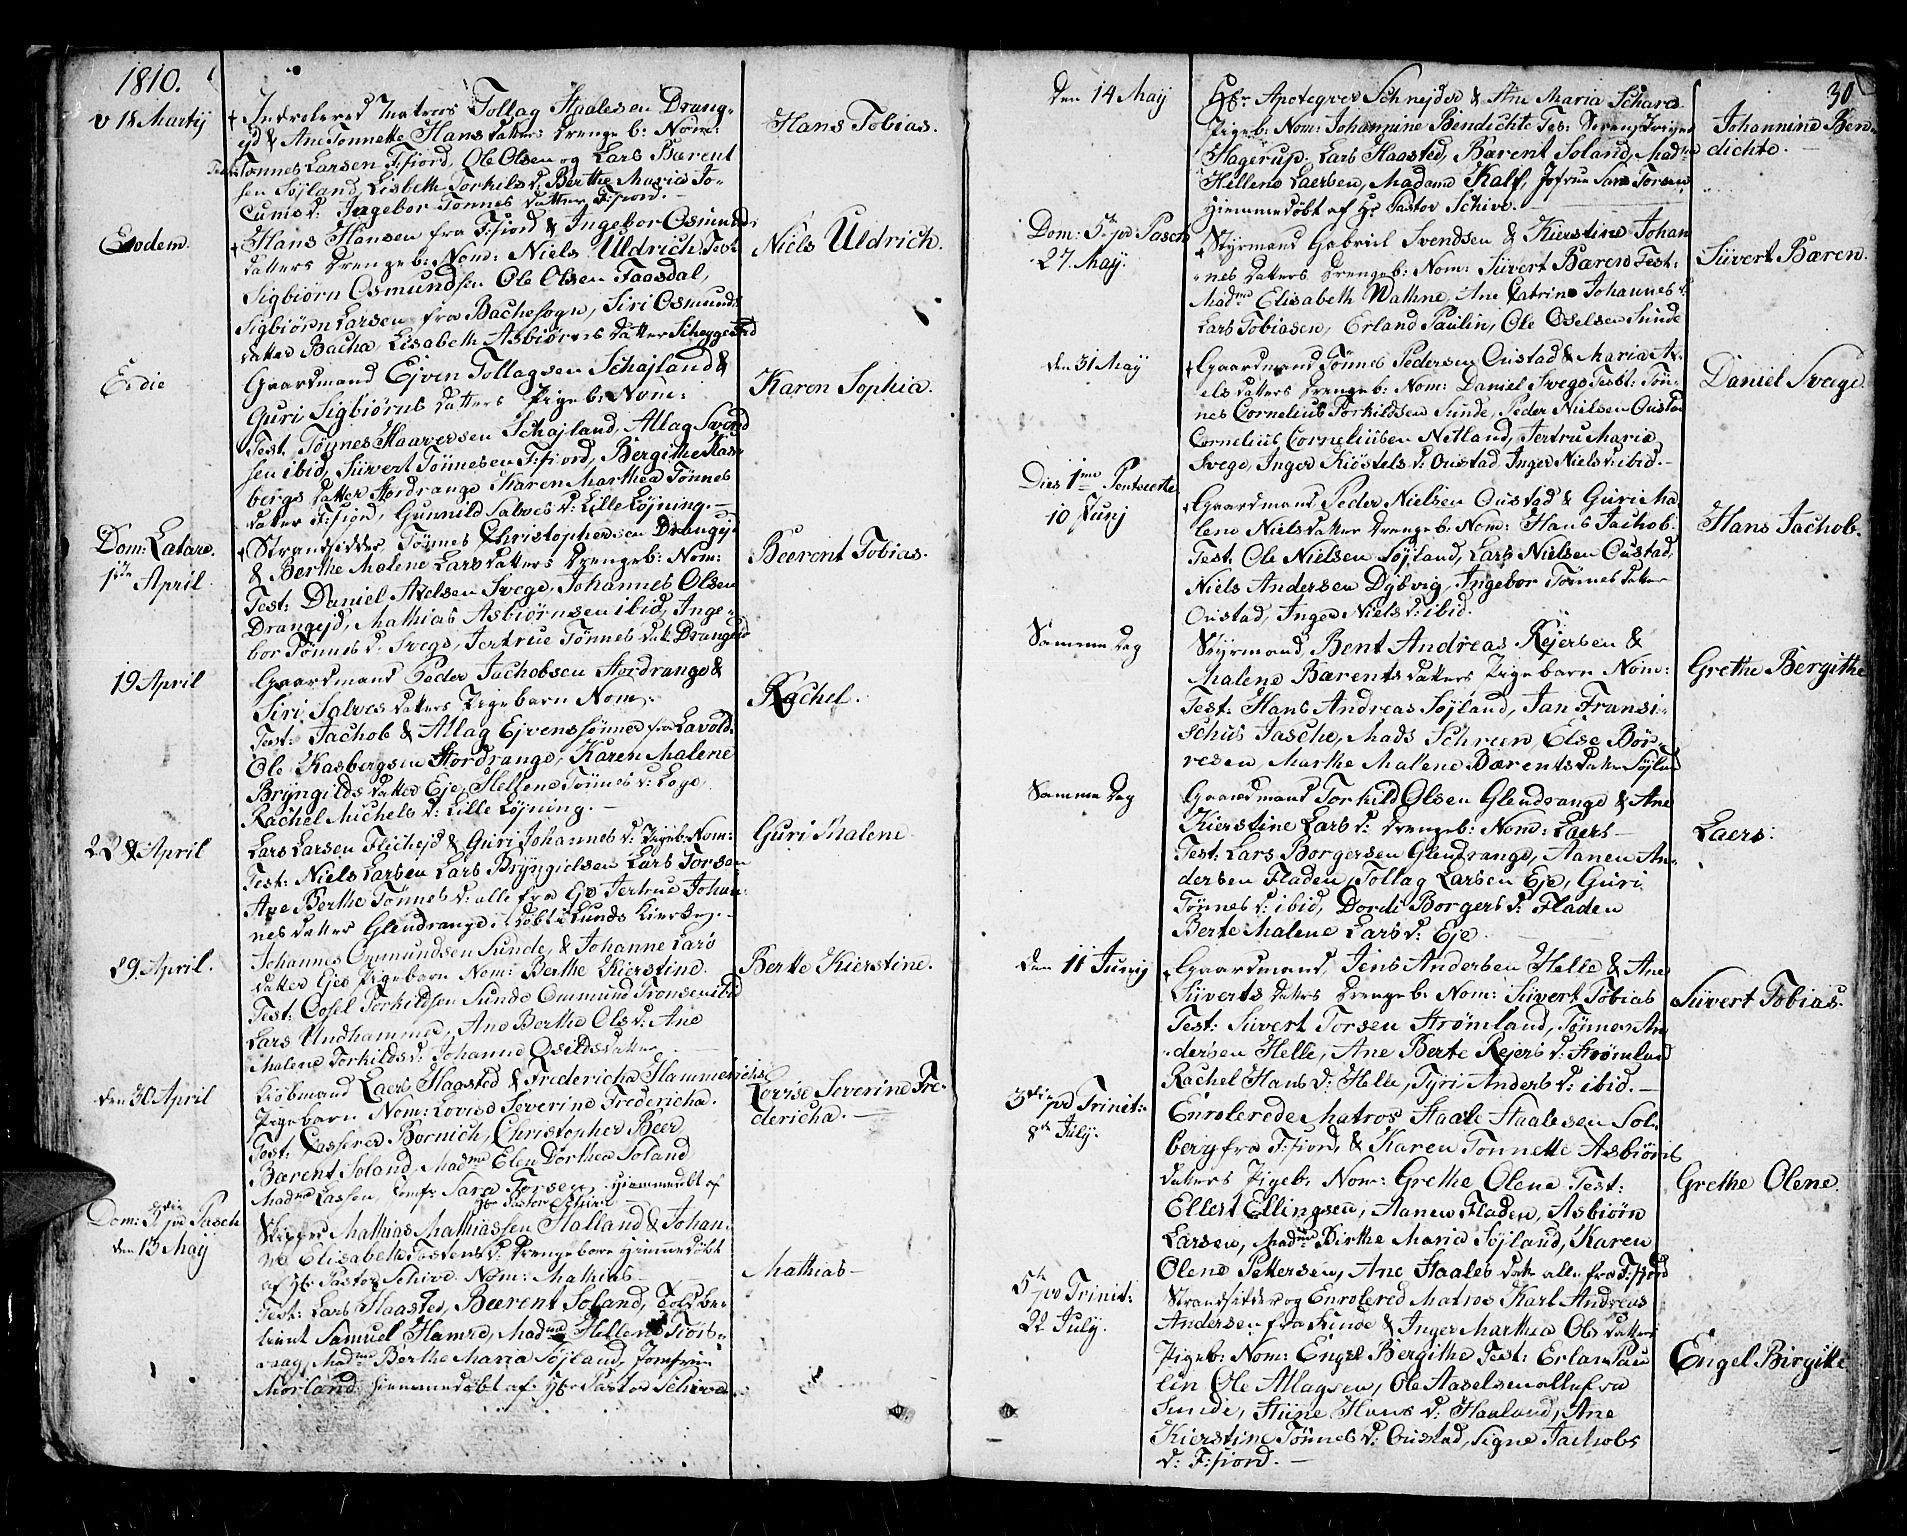 1810.
v 18 Martij
Enrolered Matros Tollag Staalesen Drang-
ejd & Ane Tonnette Hansdatters Drengeb: Nom:
Hans Tobias.
Tønnes Larsen F:fiord, Ole Olsen og Lars Bærent
sen Søjland, Lisbeth Torkilsd: Berthe Maria Jo-
Cumsd: Ingebor Tønnes datter F:fiord.
Eodem.
Hans Hansen fra F:fiord & Ingebor Osmunds
datters Drengeb: Nom: Niels Uldrich Test:
Niels Uldrich.
Sigbiørn Osmundsen Ole Olsen Faasdal,
Sigbiørn Larsen fra Bachesogn, Siri Osmunds
datter Bacha, Lisabeth Asbiørns datter Scheggestad
Eodie
Gaardmand Ejven Tollagsen Schajland &
Guri Sigbiørns datters Pigeb: Nom:
Karen Sophia.
Test. Tøgnes Haaversen Schajland, Atlag Svend
sen ibid, Siivert Tønnesen F:fiord, Bergithe Kas-
bergs datter Stordrange Karen Marthea Tønnes
datter F:fiord, Gunnild Salves d: Lille Løjning.
Dom: Latare.
1ste April.
Strandsidder Tønnes Christophersen Drangejd
& Berthe Malene Larsdatters Drengeb: Nom:
Bæerent Tobias.
Test: Daniel Axelsen Svege, Johannes Olsen
Drangejd, Mathias Asbiørnsen ibid, Inge-
bor Tønnes d. Svege, Jertrue Tønnes dat: Drangejd
19 April
Gaardmand Peder Jachobsen Stordrange &
Siri Salves datters Pigebarn Nom:
Rachel.
Test: Jachob & Atlag Ejvenssønner fra Lavold.
Ole Kasbergsen Stordrange, Karen Malene
Bryngilds datter Eje, Hellene Tønnes d: Loge
Rachel Michels d: Lille Løjning.
22 April
Lars Larsen Flichejd & Guri Johannes d: Pigeb: Nom:
Guri Malene.
Test: Niels Larsen Lars Bryngielsen Lars Torsen
Ane Berthe Tønnes d: alle fra Eje Jertrue Johan-
nes datter Glendrange. døbt i Lunds Kierke.
29. April.
Johannes Ommundsen Sunde, & Johanne Lars
datter Ejes Pigebarn Nom: Berthe Kierstine.
Berte Kierstine.
Test: Cosel Torkildsen Sunde Ommund Tronsen ibid
Lars Undhammer, Ane Berthe Ols d: Ane
Malene Torkilds d: Johanne Osilds datter
den 30 April
Kiøbmand Laers Haasted & Fredericha Hammerichs
Pigebarn Nom: Lovise Severine Fredericha.
Lovise Severine Fre-
dericha.
Test: Casserer Bornich, Christopher Beer
Bærent Soland, Madme Elen Dorthea Soland
Madme Lassen, Jomfr Sara Torsen. Hiemmedøbt af
Hr Pastor Schive
Dom: 3tie po Pasch
den 13 Maij
Skipper Mathias Mathiassen Halland & Johan-
ne Elisabeth Tostens d: Drengebarn hiemmedøbt
af Hr Pastor Schive. Nom: Mathias
Mathias
Test: Lars Haasted, Bærent Soland, Toldbe-
tient Samuel Hamre, Madme Hellene Fiors-
vaag, Madme Berthe Maria Søjland, Jomfrue
Morland. hiemmedøbt af Hr Pastor Schive
30
den 14 Maij
Hr Apoteqver Schnejder & Ane Maria Schars
Pigeb: Nom: Johannine Bendichte Tes: Sorenskriver
Johannine Ben-
dichte.
Hagerup. Lars Haasted, Bærent Soland, Madme
Hellene Laersen, Madame Kalf, Jofrue Sara Torsen
Hiemmedøbt af Hr Pastor Schive.
Dom: 5te po Pasch
27. Maij.
Styrmand Gabriel Svendsen & Kierstine Johan
nes datters Drengeb: Nom: Siivert Bæren Test:
Siivert Bæren.
Madme Elisabeth Wathne, Ane Catrine Johannes d:
Lars Tobiasen, Erland Paulin, Ole Oselsen Sunde
den 31 Maij
Gaardmand Tønnes Pedersen Oustad & Maria Ax-
els datters Drengeb: Nom: Daniel Svege Test: Tøn-
Daniel Svege.
nes Cornelius Torkildsen Sunde, Peder Nielsen Oustad
Cornelius Corneliusen Netland, Jertru Maria
Svege, Inger Kiøstels d: Oustad Inger Niels d: ibid.
Dies 1me Pentecoste
10 Junij
Gaardmand Peder Nielsen Oustad & Guri Ma
lene Nielsdatter Drengeb: Nom: Hans Jachob.
Hans Jachob.
Test. Ole Nielsen Søjland, Lars Nielsen Oustad,
Niels Andersen Dybvig, Ingebor Tønnes datter
Oustad, Inger Niels d: ibid.
Samme dag
Styrmand, Bent Andreas Rejersen &
Malene Bærentsdatters Pigebarn Nom:
Grethe Bergithe
Test: Hans Andreas Søjland, Jan Fransi-
schus Jasche, Mads Schreen, Else Bør-
resen, Marthe Malene Bærentsdatter Søjland
Samme dag
Gaardmand Torkild Olsen Glendrange & Ane
Kierstine Lars d: Drengeb: Nom: Laers
Laers.
Test: Lars Borgersen Glendrange, Aanen An-
dersen Fladen, Tollag Larsen Eje, Guri
Tønnes d: ibid, Dordi Borgers d: Fladen
Berte Malene Lars d: Eje.
den 11 Junij
Gaardmand, Jens Andersen Helle & Ane
Siiverts datters Drengeb: Nom: Siivert Tobias
Siivert Tobias.
Test: Siivert Torsen Strømland, Tønnes An
dersen Helle, Ane Berte Rejers d: Strømland
Rachel Hans d: Helle, Tyri Anders d: ibid.
3die po Trinit:
8de July.
Enrolerede Matros Staale Staalesen Sol-
berg fra F:fiord, & Karen Tonnette Asbiørns
datters Pigeb: Nom: Grethe Olene Test:
Grethe Olene.
Ellert Ellingsen, Aanen Fladen, Asbiørn
Larsen, Madme Birthe Maria Søjland, Karen
Olene Pettersen, Ane Staales datt: alle fra F:fiord
5te po Trinit:
22 July.
Strandsidder og Enrolered Matros Karl Andreas
Andersen fra Sunde & Inger Marthea Ols datters
Pigeb: Nom: Engel Bergithe Test: Erlan Pau
Engel Birgitte
lin Ole Atlagsen, Ole Aaselsen alle fra
Sunde, Stine Hans d: Haaland, Ane
Kierstine Tønnes d: Oustad, Signe Jachobs
d: F:fiord.